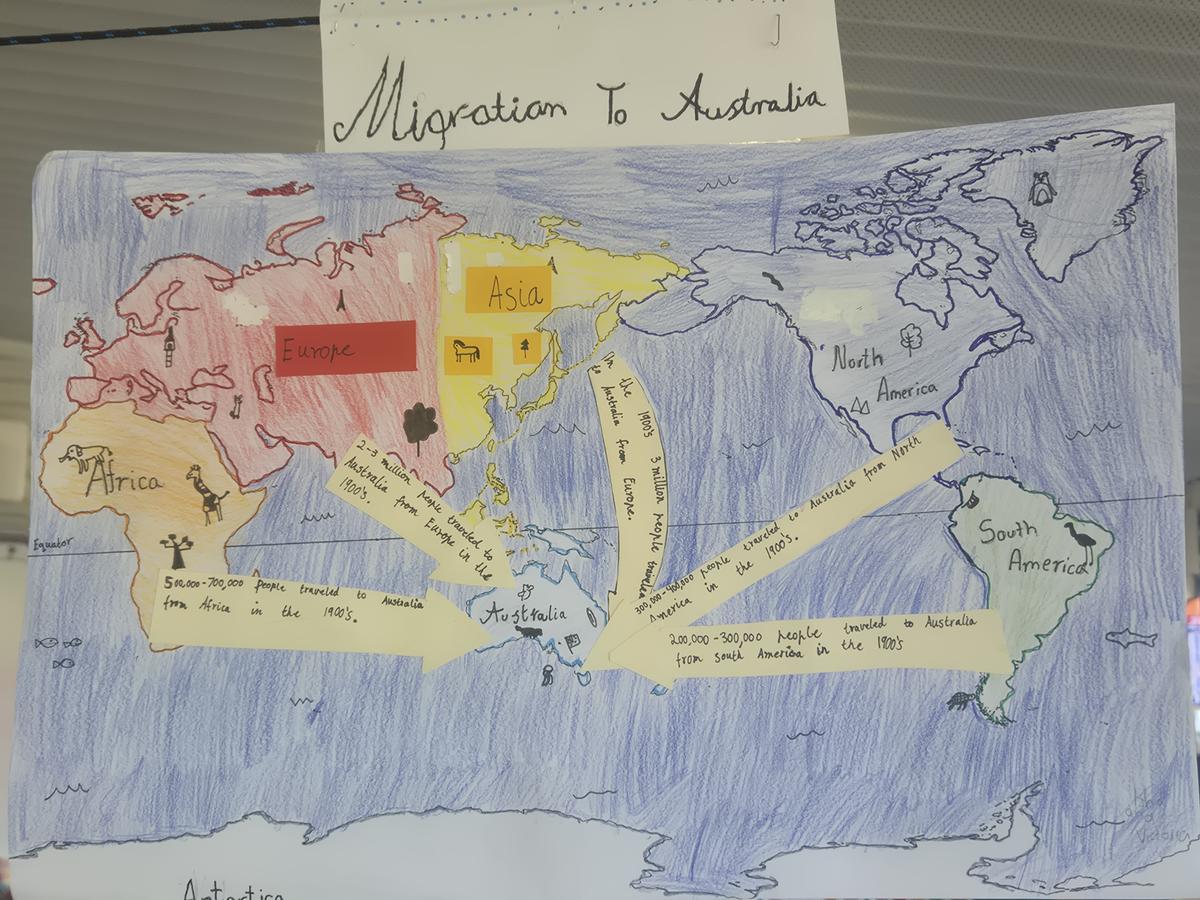 Migration To Australia
Europe
Asia
North
America
Africa
South
America
Equator
Australia
2-3 million people traveled to
Australia from Europe in the
1900's.
In the 1900's 3 million people traveled
to Australia from Europe.
300,000-400,000 people traveled to Australia from North
America in the 1900's.
500,000-700,000 people traveled to Australia
from Africa in the 1900's.
200,000-300,000 people traveled to Australia
from South America in the 1900's
Antartica